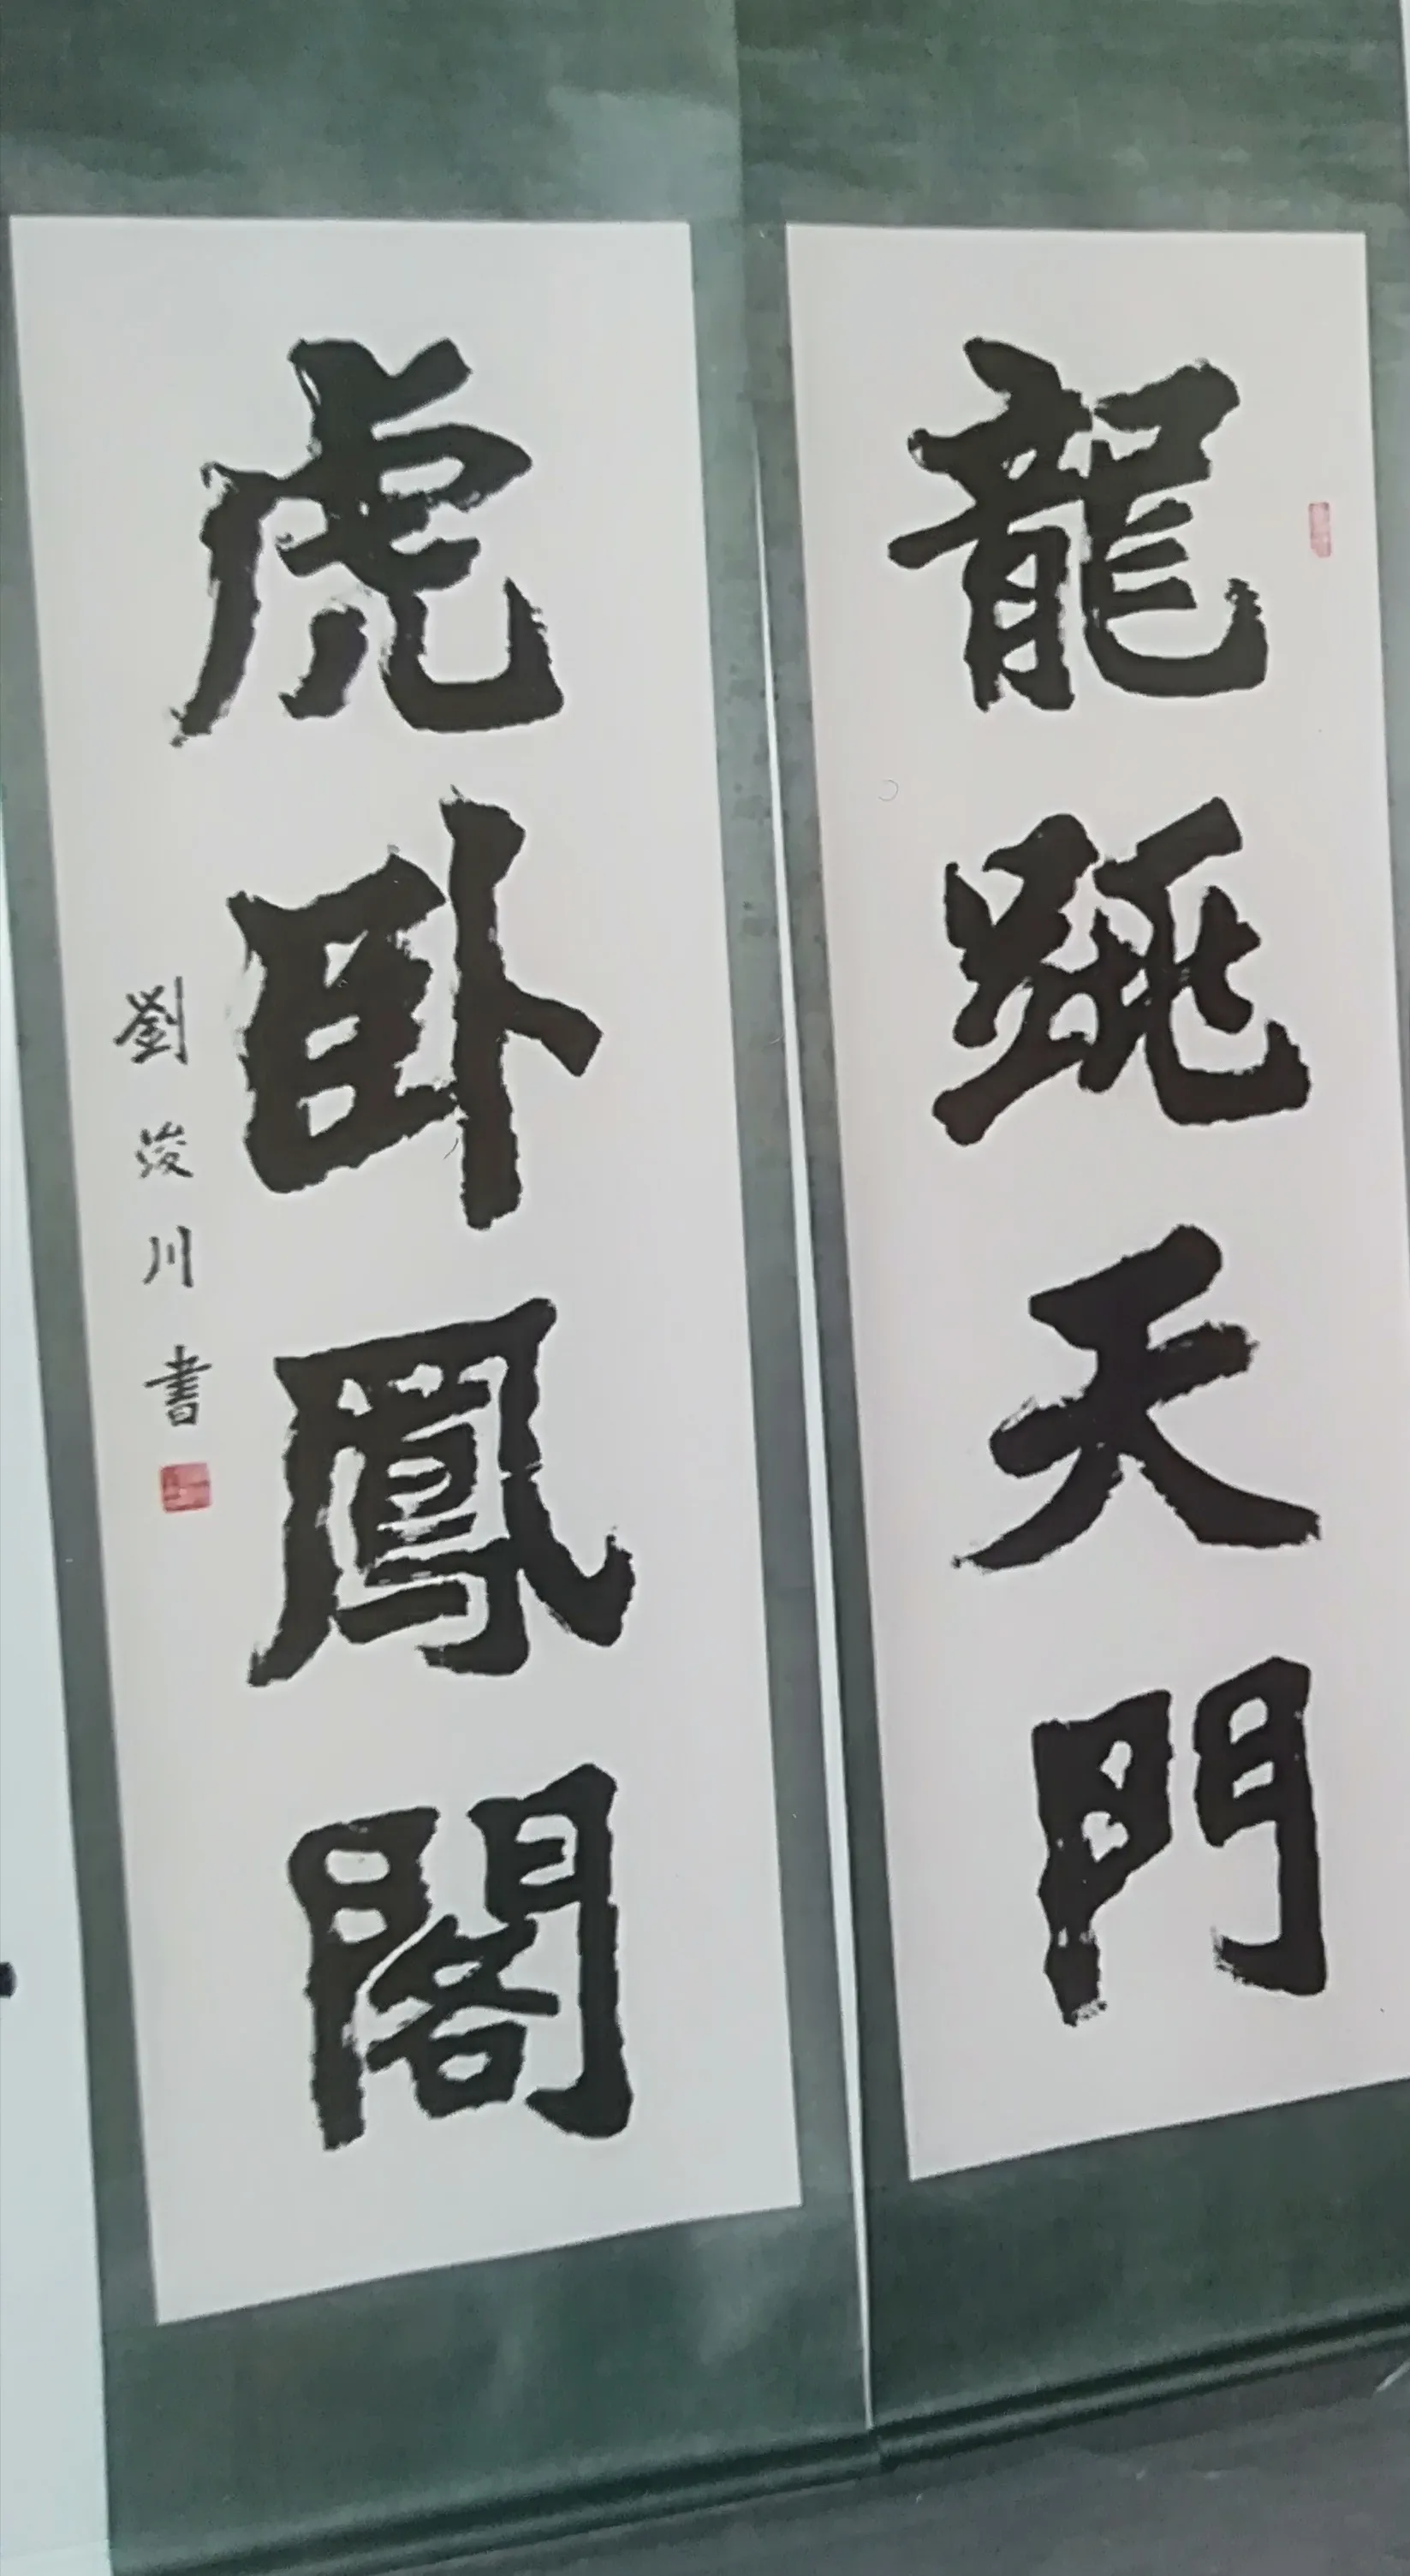 龍跳天門
虎卧鳳閣
劉浚川書